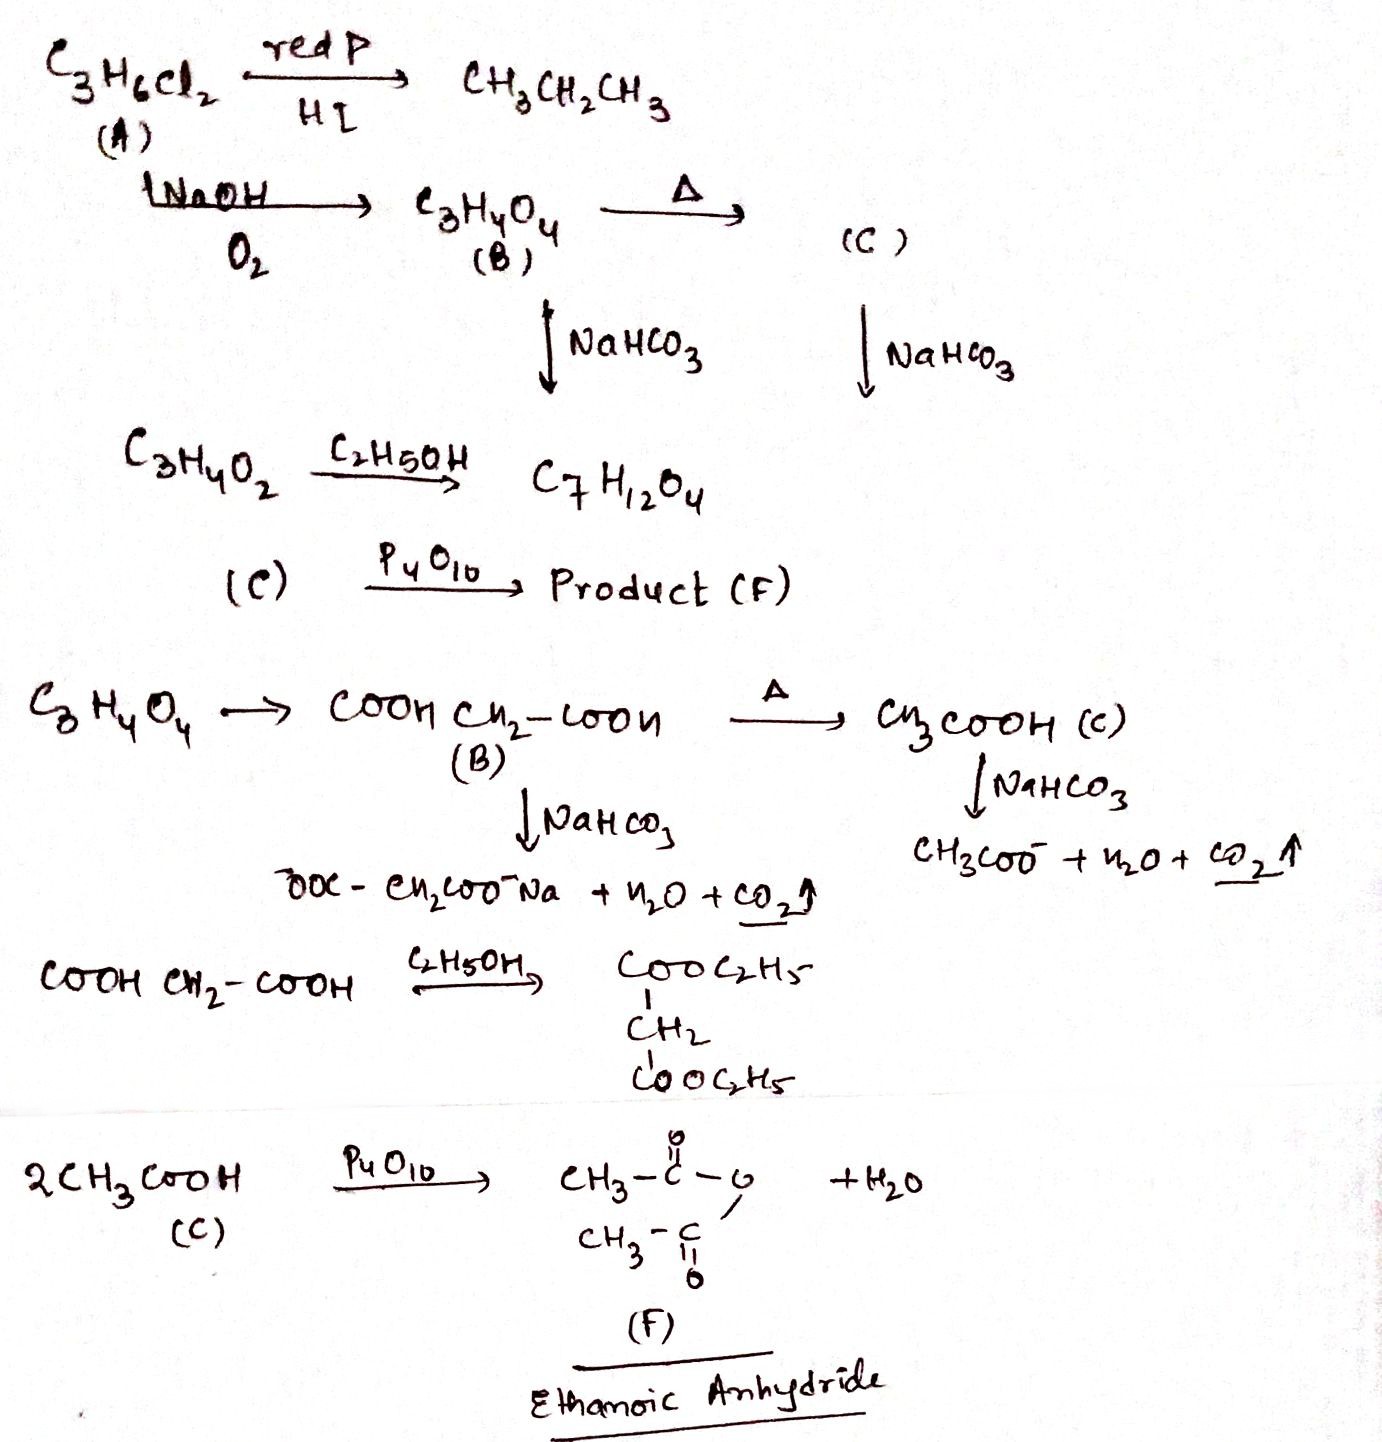 C3H6Cl2 red P HI → CH3CH2CH3
(A)
NaOH O2 → C3H4O4 Δ → (C)
(B)
↓ NaHCO3 ↓ NaHCO3
C3H4O2 C2H5OH → C7H12O4
(C) P4O10 → Product (F)
C3H4O4 → COOH CH2-COOH Δ → CH3COOH (C)
(B)
↓ NaHCO3 ↓ NaHCO3
CH3COO⁻ + H2O + CO2↑
⁻OOC - CH2COO⁻Na + H2O + CO2↑
COOH CH2-COOH C2H5OH → COOC2H5
CH2
COOC2H5
2CH3COOH P4O10 → CH3-C-O + H2O
O
(C)
CH3-C
O
(F)
Ethanoic Anhydride